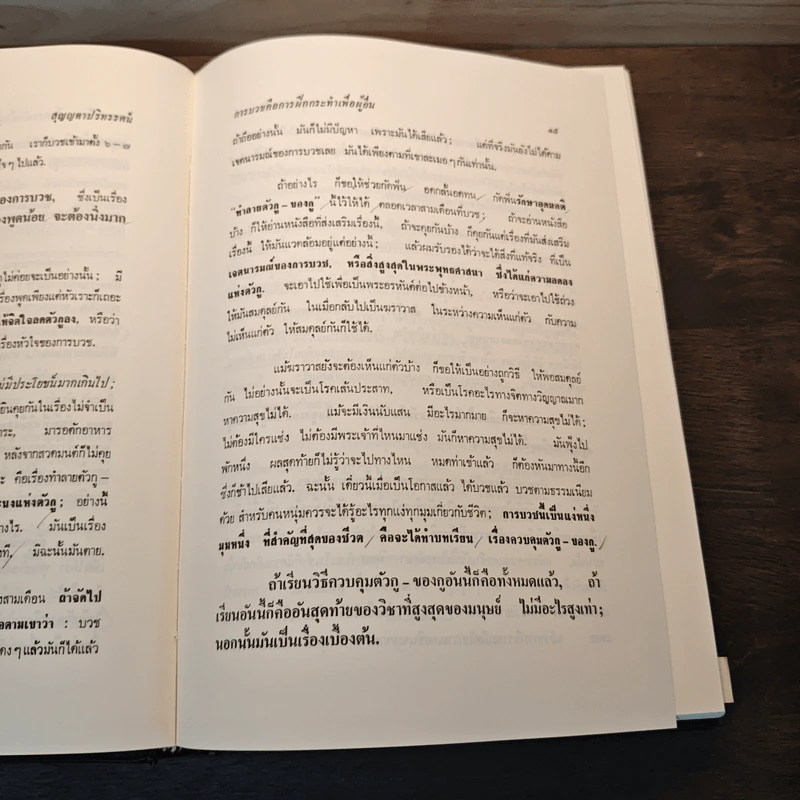 สุญญตาปริทรรศน์
กัน เราก็บวชเข้ามาตั้ง ๖ – ๗
ๆ ไปแล้ว.
องการบวช, ซึ่งเป็นเรื่อง
องพูดน้อย จะต้องนิ่งมาก
ไม่ค่อยจะเป็นอย่างนั้น; มี
รื่องพูดเพียงแต่หัวเราะก็เถอะ
ให้จิตใจลดตัวกูลง, หรือว่า
เรื่องหัวใจของการบวช.
ไม่มีประโยชน์มากเกินไป;
ยินคุยกันในเรื่องไม่จำเป็น
ระ, มารอตักอาหาร
หลังจากสวดมนต์ก็ไม่คุย
คือเรื่องทำลายตัวกู –
ะนงแห่งตัวกู; อย่างนี้
างไร. มันเป็นเรื่อง
ที, มิฉะนั้นมันตาย.
งสามเดือน ถ้าจัดไป
อตามเขาว่า : บวช
ๆ แล้วมันก็ได้แล้ว
การบวชคือการฝึกกระทำเพื่อผู้อื่น ๑๕
ถ้าถืออย่างนั้น มันก็ไม่มีปัญหา เพราะมันได้เสียแล้ว; แต่ที่จริงมันยังไม่ได้ตาม
เจตนารมณ์ของการบวชเลย มันได้เพียงตามที่เขาละเมอ ๆ กันเท่านั้น.
ถ้าอย่างไร ก็ขอให้ช่วยกัดฟัน อดกลั้นอดทน กัดฟันรักษาอุดมคติ
“ทำลายตัวกู – ของกู” นี้ไว้ให้ได้ ตลอดเวลาสามเดือนที่บวช; ถ้าจะอ่านหนังสือ
บ้าง ก็ให้อ่านหนังสือที่ส่งเสริมเรื่องนี้, ถ้าจะคุยกันบ้าง ก็คุยกันแต่เรื่องที่มันส่งเสริม
เรื่องนี้ ให้มันแวดล้อมอยู่แต่อย่างนี้; แล้วผมรับรองได้ว่าจะได้สิ่งที่แท้จริง ที่เป็น
เจตนารมณ์ของการบวช, หรือสิ่งสูงสุดในพระพุทธศาสนา ซึ่งได้แก่ความลดลง
แห่งตัวกู. จะเอาไปใช้เพื่อเป็นพระอรหันต์ต่อไปข้างหน้า, หรือว่าจะเอาไปใช้ถ่วง
ให้มันสมดุลย์กัน ในเมื่อกลับไปเป็นฆราวาส ในระหว่างความเห็นแก่ตัว กับความ
ไม่เห็นแก่ตัว ให้สมดุลย์กันก็ใช้ได้.
แม้ฆราวาสยังจะต้องเห็นแก่ตัวบ้าง ก็ขอให้เป็นอย่างถูกวิธี ให้พอสมดุลย์
กัน ไม่อย่างนั้นจะเป็นโรคเส้นประสาท, หรือเป็นโรคอะไรทางจิตทางวิญญาณมาก
หาความสุขไม่ได้. แม้จะมีเงินนับแสน มีอะไรมากมาย ก็จะหาความสุขไม่ได้;
ไม่ต้องมีใครแช่ง ไม่ต้องมีพระเจ้าที่ไหนมาแช่ง มันก็หาความสุขไม่ได้. มันพุ้งไป
พักหนึ่ง ผลสุดท้ายก็ไม่รู้ว่าจะไปทางไหน หมดท่าเข้าแล้ว ก็ต้องหันมาทางนี้อีก
ซึ่งก็ช้าไปเสียแล้ว. ฉะนั้น เดี๋ยวนี้เมื่อเป็นโอกาสแล้ว ได้บวชแล้ว บวชตามธรรมเนียม
ด้วย สำหรับคนหนุ่มควรจะได้รู้อะไรทุกแง่ทุกมุมเกี่ยวกับชีวิต; การบวชนี้เป็นแง่หนึ่ง
มุมหนึ่ง ที่สำคัญที่สุดของชีวิต คือจะได้ทำบทเรียน เรื่องควบคุมตัวกู–ของกู.
ถ้าเรียนวิธีควบคุมตัวกู – ของกูอันนี้ก็คือทั้งหมดแล้ว, ถ้า
เรียนอันนี้ก็คืออันสุดท้ายของวิชาที่สูงสุดของมนุษย์ ไม่มีอะไรสูงเท่า;
นอกนั้นมันเป็นเรื่องเบื้องต้น.